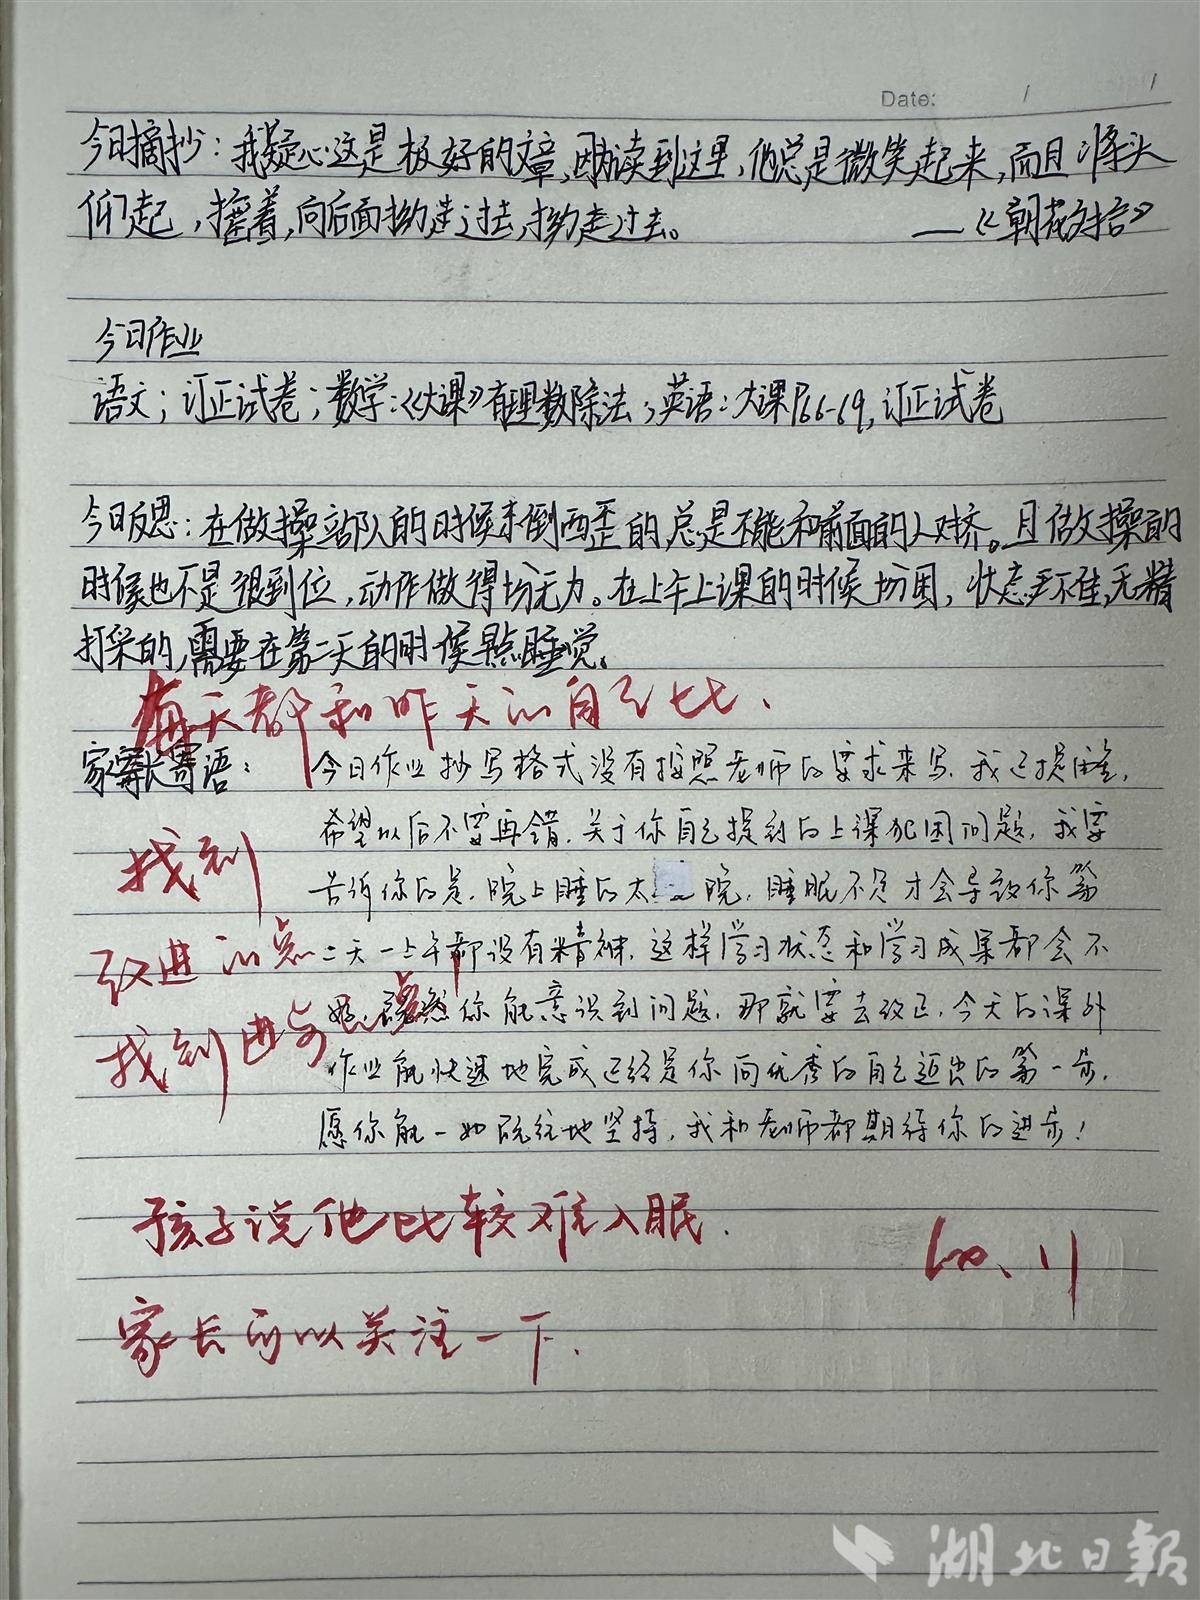 Date: / /
今日摘抄：我疑心这是极好的文章，因为读到这里，他总是微笑起来，而且将头
仰起，摇着，向后面拗过去，拗过去。 ——《朝花夕拾》
今日作业
语文；订正试卷；数学：《大课》有理数除法；英语：大课P66-69，订正试卷
今日反思：在做操站队的时候东倒西歪的总是不能和前面的人对齐。且做操的
时候也不是很到位，动作做得均无力。在上午上课的时候均困，状态不佳，无精
打采的，需要在第二天的时候早点睡觉。
每天都和昨天的自己比．
家长寄语： 今日作业抄写格式没有按照老师的要求来写．我已提醒，
希望以后不要再错．关于你自己提到的上课犯困问题，我要
找到
告诉你的是．晚上睡的太晚，睡眠不足才会导致你第
改进的点
二天一上午都没有精神．这样学习状态和学习成果都会不
找到进步点
好．既然你能意识到问题，那就要去改正，今天的课外
作业能快速地完成已经是你向优秀的自己迈出的第一步．
愿你能一如既往地坚持，我和老师都期待你的进步！
孩子说他比较难入眠．
家长可以关注一下．
湖北日报